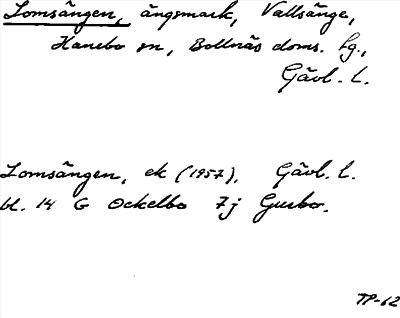 Lomsängen, ängsmark, Vallsänge,
Hanebo sn, Bollnäs doms. fg.,
Gävl. l.
Lomsängen, ek (1957), Gävl. l.
bl. 14 G Ockelbo 7j Gusbo.
TP-62